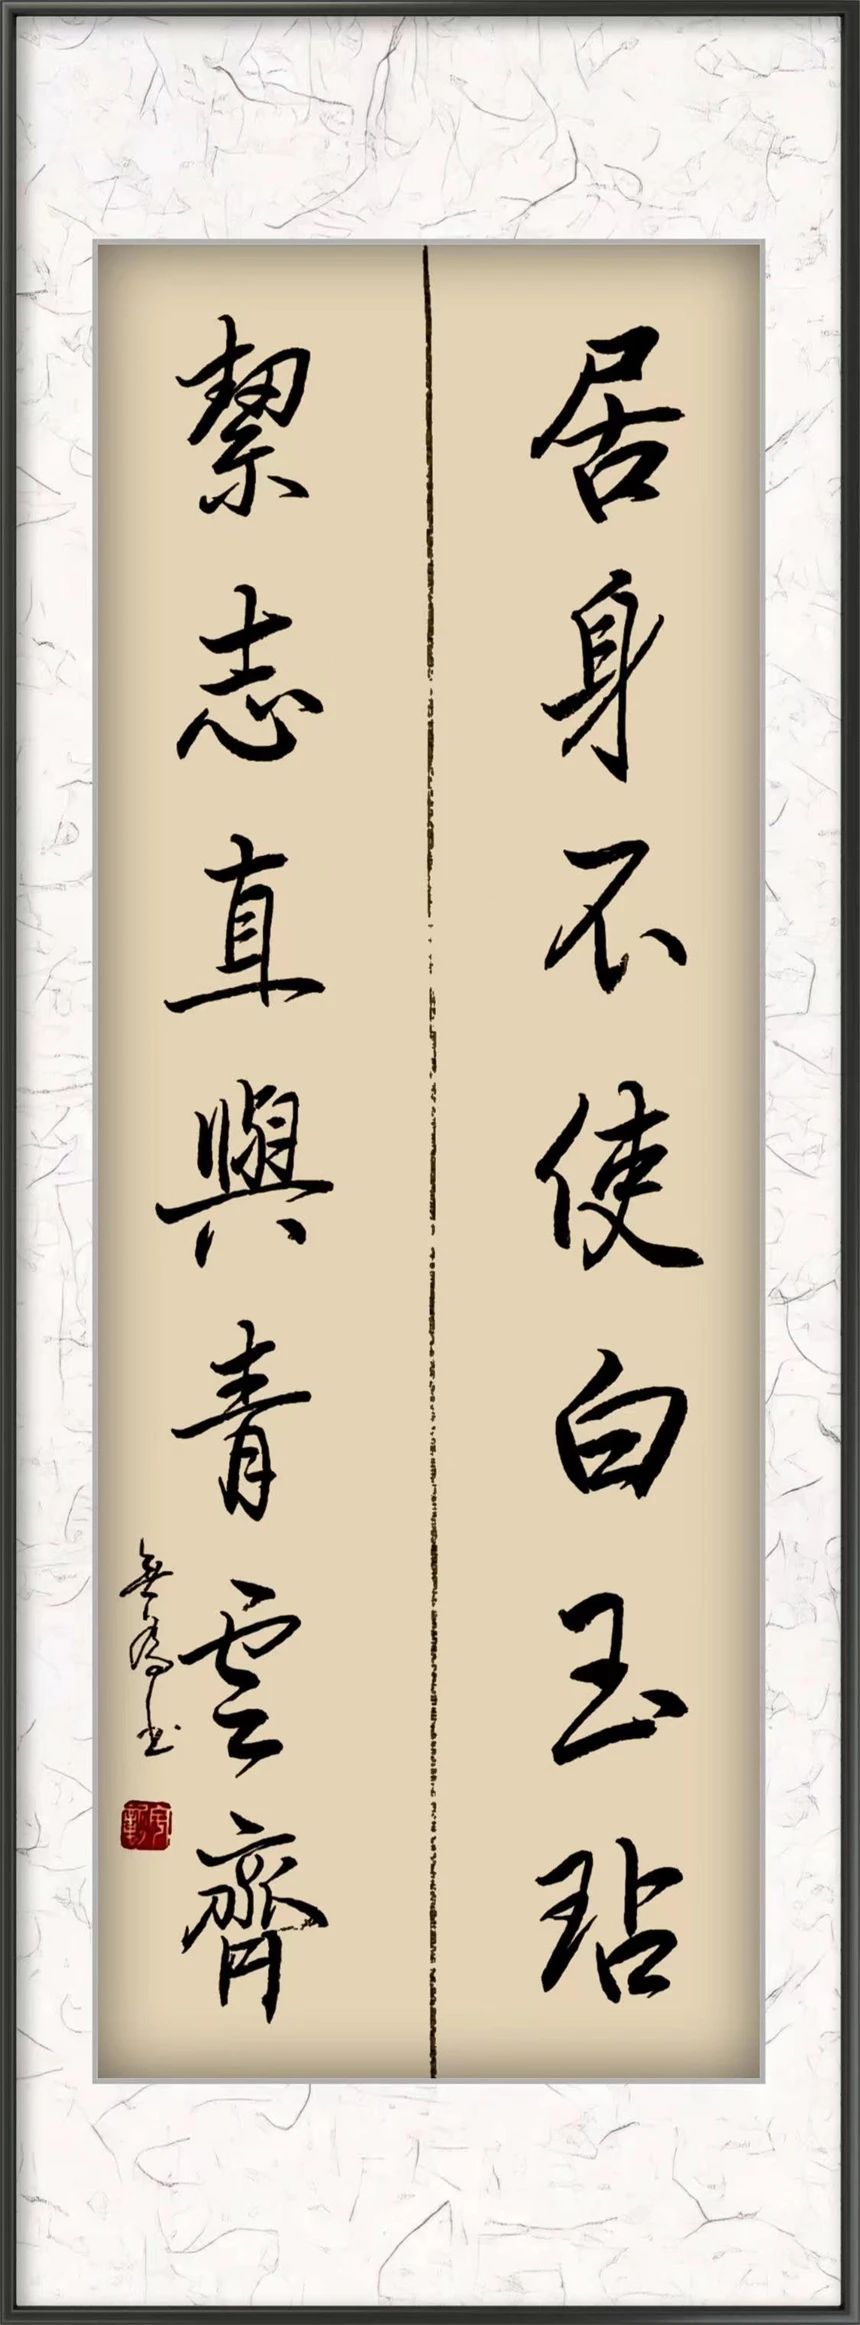 居身不使白玉玷
絜志直與青雲齊